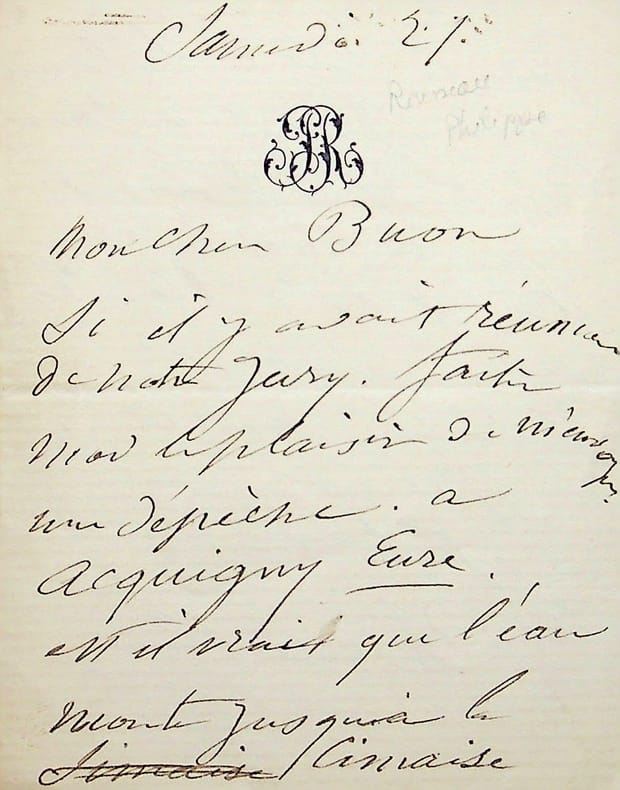 Samedi 27.
Rousseau
Philippe
PR
Mon cher Buon
Si il y avait réunion
de notre Jury. faites
moi le plaisir de m'envoyer
une dépèche. a
Acquigny Eure.
est il vrait que l'éau
monte jusqu'a la
Simaise Cimaise